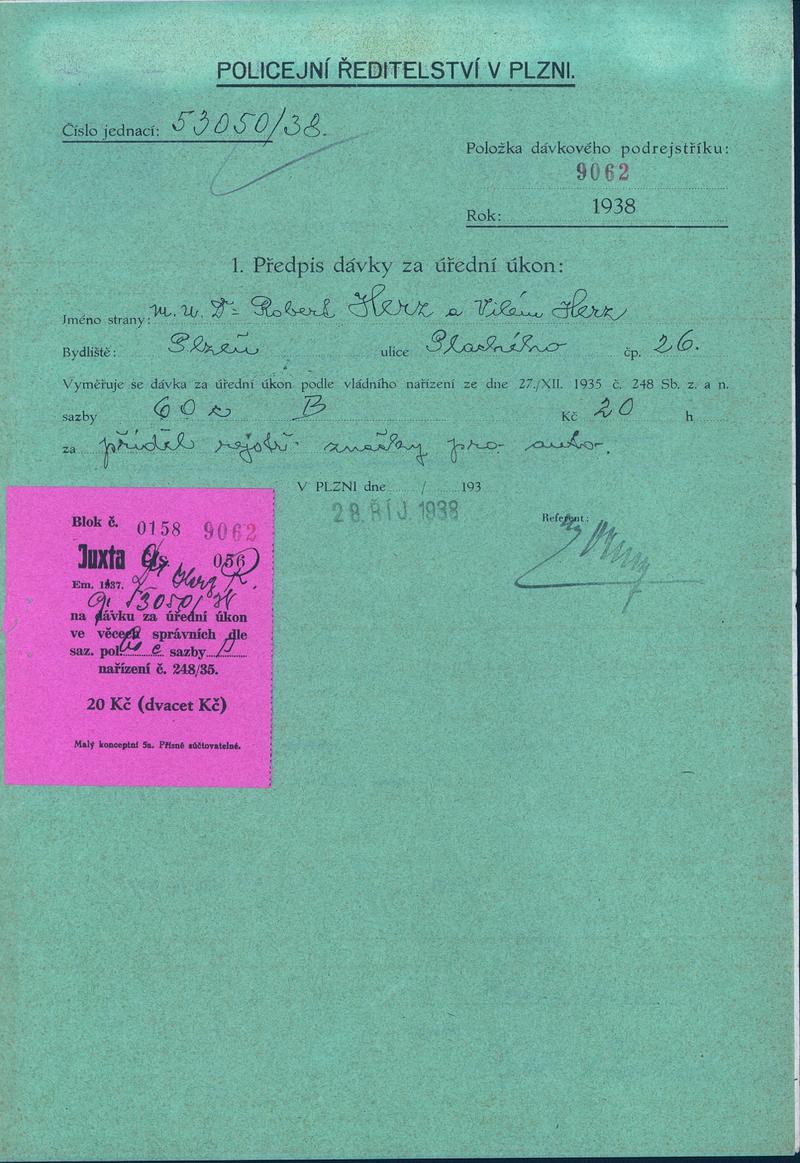 POLICEJNÍ ŘEDITELSTVÍ V PLZNI.
Číslo jednací: 53050/38.
Položka dávkového podrejstříku:
9062
Rok: 1938
1. Předpis dávky za úřední úkon:
Jméno strany: M. U. Dr Robert Herz a Vilém Herz
Bydliště: Plzeň ulice Plachého čp. 26.
Vyměřuje se dávka za úřední úkon podle vládního nařízení ze dne 27./XII. 1935 č. 248 Sb. z. a n.
sazby 60 c B Kč 20 h
za příděl rejstř. značky pro auto.
V PLZNI dne / 193
28. ŘÍJ. 1938
Referent:
Blok č. 0158 9062
Juxta 056
Em. 1937. Herz R.
53050/38
na dávku za úřední úkon
ve věcech správních dle
saz. pol. c sazby B
nařízení č. 248/35.
20 Kč (dvacet Kč)
Malý konceptní 5a. Přísně súčtovatelné.